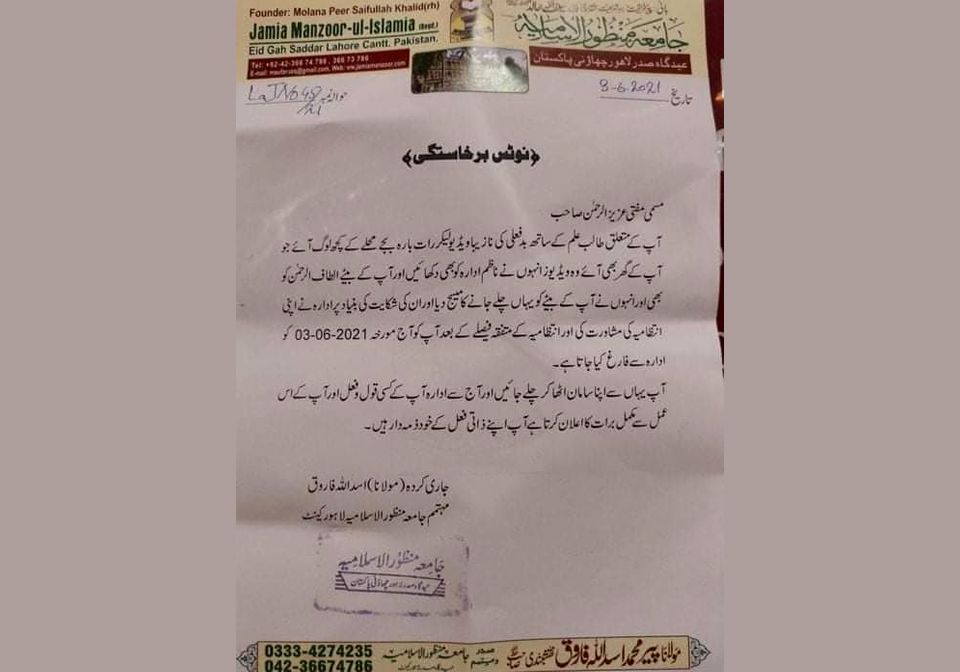 Founder: Molana Peer Saifullah Khalid(rh)
Jamia Manzoor-ul-Islamia (Regd.)
Eid Gah Saddar Lahore Cantt. Pakistan.
Tel: +92-42-366 74 786 , 366 73 786
جامعہ منظور الاسلامیہ
عیدگاہ صدر لاہور چھاؤنی پاکستان
حوالہ نمبر
تاریخ 8-6-2021
﴿نوٹس برخاستگی﴾
مسمی مفتی عزیز الرحمٰن صاحب
آپ کے متعلق طالب علم کے ساتھ بدفعلی کی نازیبا ویڈیو لیکر رات بارہ بجے محلے کے کچھ لوگ آئے جو
آپ کے گھر بھی آئے وہ ویڈیوز انہوں نے ناظم ادارہ کو بھی دکھائیں اور آپ کے بیٹے الطاف الرحمٰن کو
بھی اور انہوں نے آپ کے بیٹے کو یہاں چلے جانے کا میسج دیا اور ان کی شکایت کی بنیاد پر ادارہ نے اپنی
انتظامیہ کی مشاورت کی اور انتظامیہ کے متفقہ فیصلے کے بعد آپ کو آج مورخہ 03-06-2021 کو
ادارہ سے فارغ کیا جاتا ہے۔
آپ یہاں سے اپنا سامان اٹھا کر چلے جائیں اور آج سے ادارہ آپ کے کسی قول و فعل اور آپ کے اس
عمل سے مکمل برات کا اعلان کرتا ہے آپ اپنے ذاتی فعل کے خود ذمہ دار ہیں۔
جاری کردہ (مولانا) اسد اللہ فاروق
مہتمم جامعہ منظور الاسلامیہ لاہور کینٹ
جامعہ منظور الاسلامیہ
عیدگاہ صدر لاہور چھاؤنی پاکستان
مولانا پیر محمد اسد اللہ فاروق نقشبندی
جامعہ منظور الاسلامیہ
0333-4274235
042-36674786